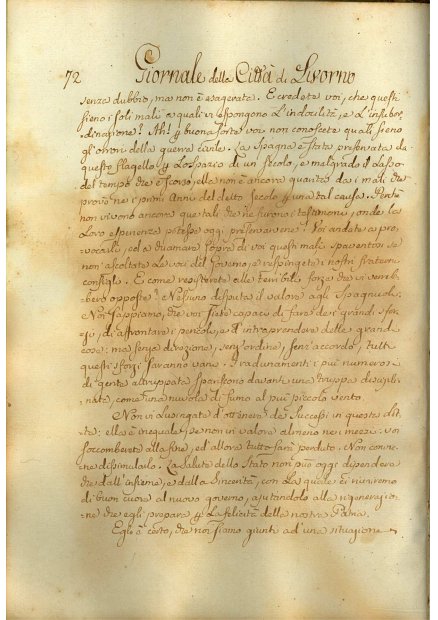 72 Giornale della Città di Livorno
senza dubbio, ma non è esagerata. E credete voi, che questi
sieno i soli mali a quali vi espongono L'indocilità, e L'insubor-
dinazione? Ah! p buona sorte voi non conoscete quali sieno
gli orrori della guerra civile. La Spagna è stata preservata da
questo flagello p Lo spazio di un secolo, e malgrado il lasso
del tempo che è scorso, ella non è ancora guarita da i mali che
provò ne i primi Anni del detto secolo p una tal causa. Perchè
non vivono ancora que' tali che ne furono i testimoni, onde la
Loro esperienza potesse oggi preservarvene! Voi andate a pro-
vocarli, ed a chiamare sopra di voi questi mali spaventosi se
non ascoltate Le voci del Governo, e respingete i nostri fraterni
consigli. E come resistereste alle terribili forze che vi vereb-
bero opposte? Nessuno disputa il valore agli Spagnuoli.
Noi sappiamo, che voi siete capaci di fare de i grandi sfor-
zi, di affrontare i pericoli, e d'intraprendere delle grandi
cose; ma senza direzione, senz'ordine, senz'accordo, tutti
questi sforzi saranno vani. I radunamenti i più numerosi
di gente attruppata spariscono davanti una truppa discipli-
nata, come una nuvola di fumo al più piccolo vento.
Non vi Lusingate d'ottenere de' successi in questa lot-
ta: ella è ineguale se non in valore almeno nei mezzi: voi
soccomberete alla fine, ed allora tutto sarà perduto. Non convie-
ne dissimularlo. La salute dello Stato non può oggi dipendere
che dall'insieme, e dalla sincerità, con La quale ci riuniremo
di buon cuore al nuovo governo, ajutandolo alla rigenerazio-
ne che egli prepara p La felicità della nostra Patria.
Egli è certo, che noi siamo giunti ad una situazione